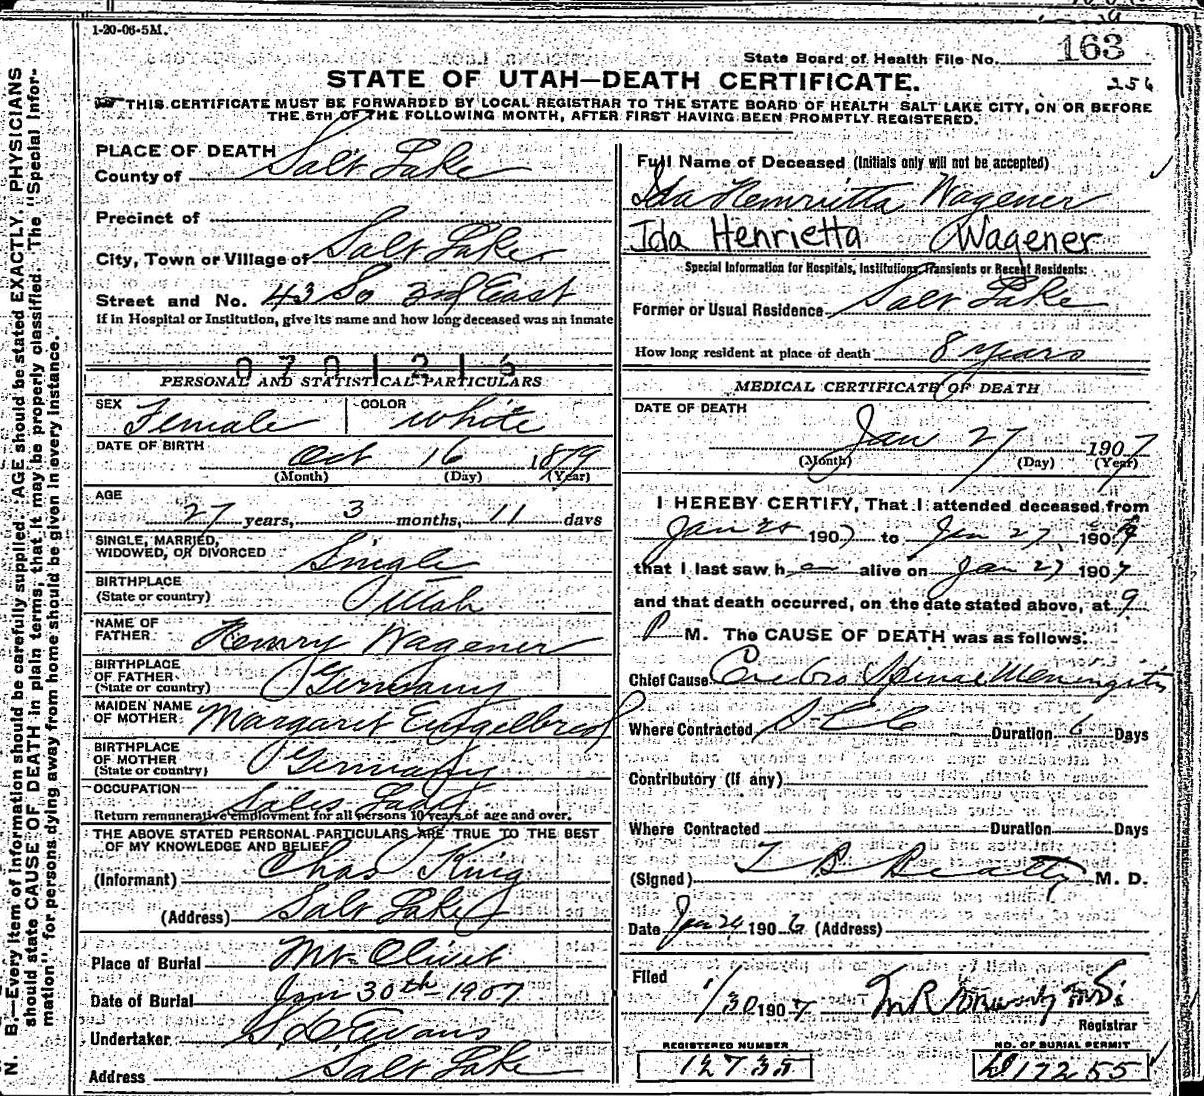 1-20-06-5M.
State Board of Health File No. 163
256
STATE OF UTAH—DEATH CERTIFICATE.
THIS CERTIFICATE MUST BE FORWARDED BY LOCAL REGISTRAR TO THE STATE BOARD OF HEALTH SALT LAKE CITY, ON OR BEFORE
THE 5TH OF THE FOLLOWING MONTH, AFTER FIRST HAVING BEEN PROMPTLY REGISTERED.
N. B.—Every item of information should be carefully supplied. AGE should be stated EXACTLY. PHYSICIANS
should state CAUSE OF DEATH in plain terms, that it may be properly classified. The "Special Infor-
mation" for persons dying away from home should be given in every instance.
PLACE OF DEATH
County of Salt Lake
Precinct of
City, Town or Village of Salt Lake
Street and No. 43 So 3rd East
If in Hospital or Institution, give its name and how long deceased was an inmate
0701216
PERSONAL AND STATISTICAL PARTICULARS
SEX Female COLOR White
DATE OF BIRTH Oct 16 1879
(Month) (Day) (Year)
AGE
27 years, 3 months, 11 days
SINGLE, MARRIED,
WIDOWED, OR DIVORCED Single
BIRTHPLACE
(State or country) Utah
NAME OF
FATHER Henry Wagener
BIRTHPLACE
OF FATHER
(State or country) Germany
MAIDEN NAME
OF MOTHER Margaret
BIRTHPLACE
OF MOTHER
(State or country) Germany
OCCUPATION Sales Lady
Return remunerative employment for all persons 10 years of age and over.
THE ABOVE STATED PERSONAL PARTICULARS ARE TRUE TO THE BEST
OF MY KNOWLEDGE AND BELIEF
(Informant) Chas King
(Address) Salt Lake
Place of Burial Mt Olivet
Date of Burial Jan 30th 1907
Undertaker S D Evans
Address Salt Lake
Full Name of Deceased (Initials only will not be accepted)
Ida Henrietta Wagener
Ida Henrietta Wagener
Special Information for Hospitals, Institutions, Transients or Recent Residents:
Former or Usual Residence Salt Lake
How long resident at place of death 8 years
MEDICAL CERTIFICATE OF DEATH
DATE OF DEATH
Jan 27 1907
(Month) (Day) (Year)
I HEREBY CERTIFY, That I attended deceased from
Jan 1907 to Jan 27 190
that I last saw her alive on Jan 27 1907
and that death occurred, on the date stated above, at 9
P M. The CAUSE OF DEATH was as follows:
Chief Cause Cerebro Spinal Meningitis
Where Contracted S L C Duration 6 Days
Contributory (if any)
Where Contracted Duration Days
(Signed) T B Beatty M. D.
Date Jan 190 (Address)
Filed
1/30 1907
Registrar
REGISTERED NUMBER
12735
NO. OF BURIAL PERMIT
17255